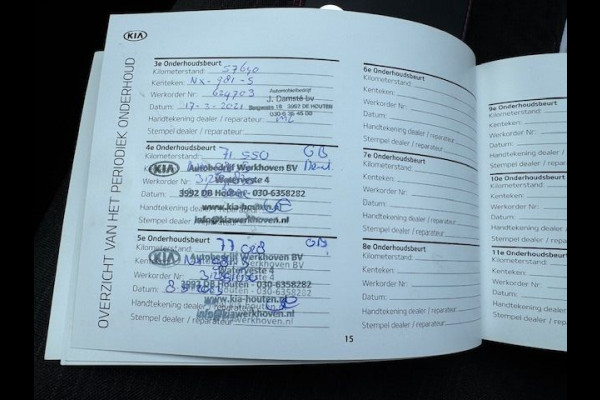 KIA
OVERZICHT VAN HET PERIODIEK ONDERHOUD
3e Onderhoudsbeurt
Kilometerstand: 57690
Kenteken: NX-981-S
Werkorder Nr:
Automobielbedrijf
J. Damsté bv
DE HOUTEN
Datum: 17-3-2021
Handtekening dealer / reparateur:
Stempel dealer / reparateur:
4e Onderhoudsbeurt
Kilometerstand: 71.550 GB
KIA Autobedrijf Werkhoven BV
Werkorder Nr: Waterveste 4
3992 DB Houten - 030-6358282
Handtekening dealer / www.kia-houten.nl
Stempel dealer / info@kiawerkhoven.nl
5e Onderhoudsbeurt
Kilometerstand: GB
KIA Autobedrijf Werkhoven BV
Werkorder Nr: Waterveste 4
Datum: 3992 DB Houten - 030-6358282
Handtekening dealer / reparateur: www.kia-houten.nl
Stempel dealer / reparateur info@kiawerkhoven.nl
6e Onderhoudsbeurt
Kilometerstand:
Kenteken:
Werkorder Nr:
Datum:
Handtekening dealer / reparateur:
Stempel dealer / reparateur:
7e Onderhoudsbeurt
Kilometerstand:
Kenteken:
Werkorder Nr:
Datum:
Handtekening dealer / reparateur:
Stempel dealer / reparateur:
8e Onderhoudsbeurt
Kilometerstand:
Kenteken:
Werkorder Nr:
Datum:
Handtekening dealer / reparateur:
Stempel dealer / reparateur:
15
9e Onderhoudsbeurt
Kilometerstand:
Kenteken:
Werkorder Nr:
Datum:
Handtekening dealer /
Stempel dealer / repara
10e Onderhoudsbeurt
Kilometerstand:
Kenteken:
Werkorder Nr:
Datum:
Handtekening dealer /
Stempel dealer / repara
11e Onderhoudsbeurt
Kilometerstand:
Kenteken:
Werkorder Nr:
Datum:
Handtekening dealer /
Stempel dealer / repar